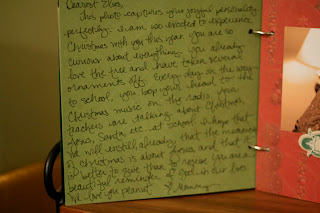 Dearest Elias,
This photo captures your joyful personality
perfectly. I am so excited to experience
Christmas with you this year. You are so
curious about everything. You already
love the tree and have taken several
ornaments off. Every day on the way
to school, you bop your head to the
Christmas music on the radio. Your
teachers are talking about Christmas
trees, Santa etc. at school. I hope that
we will instill already that the meaning
of Christmas is about Jesus and that it
is better to give than to receive. You are a
beautiful reminder of God in our lives.
We love you peanut. Mommy